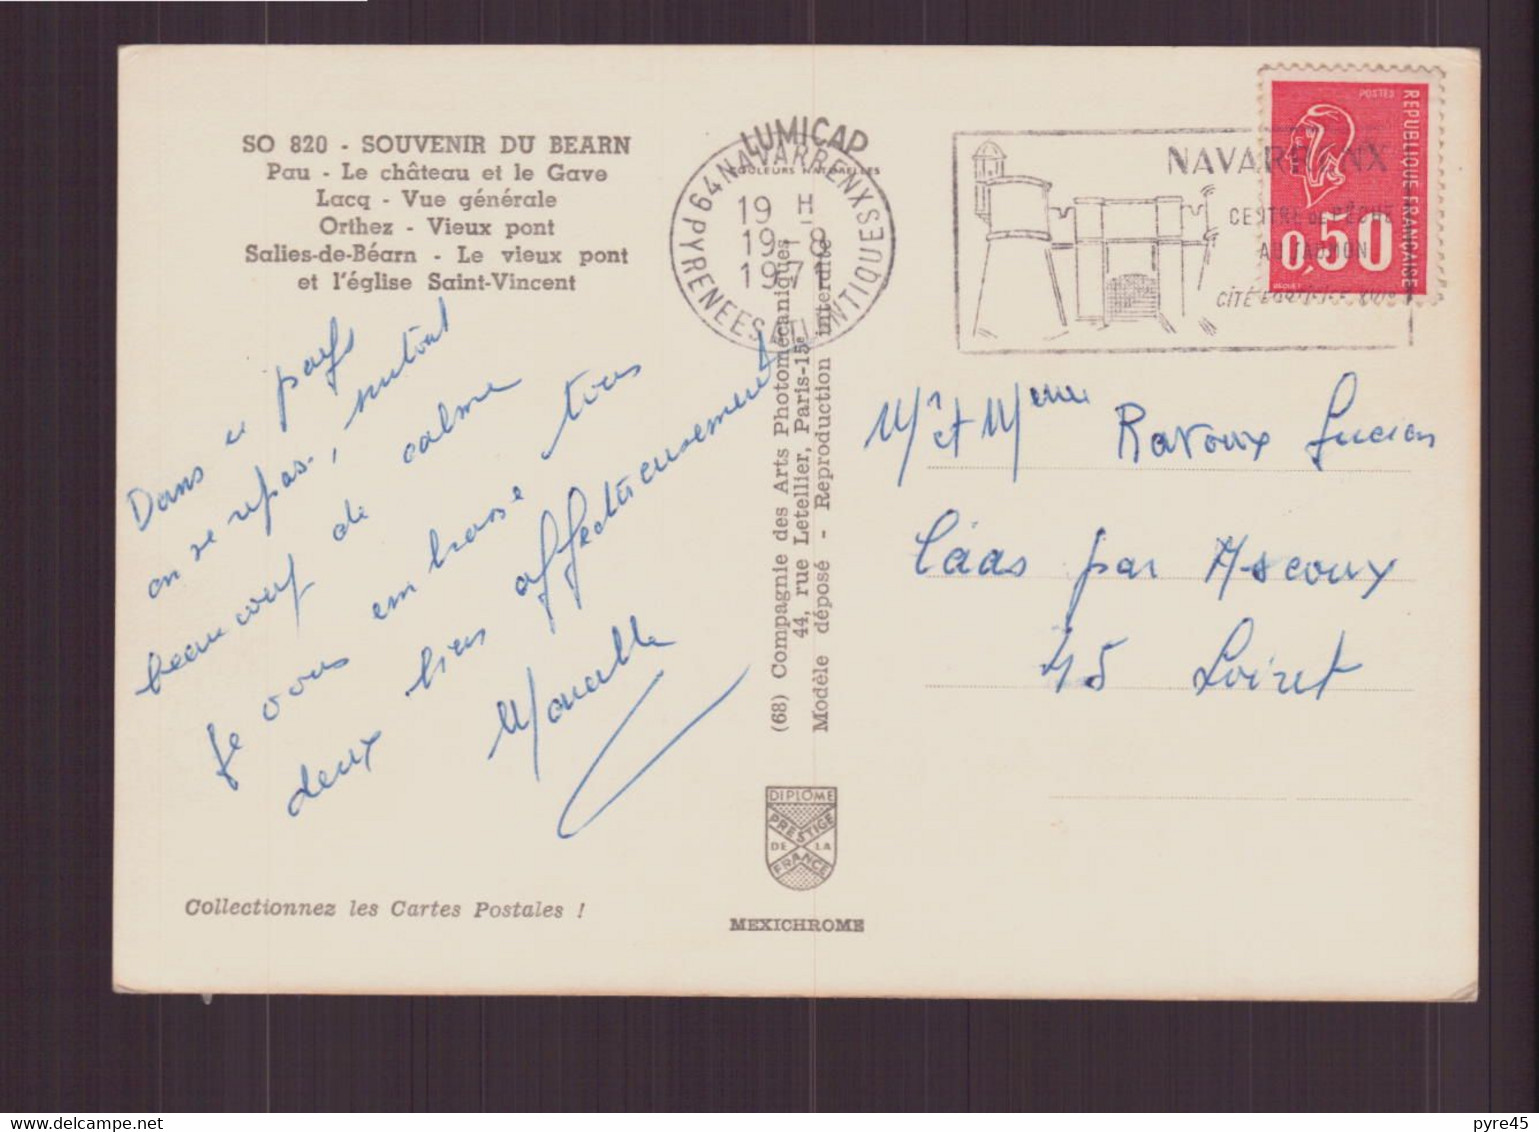 SO 820 - SOUVENIR DU BEARN
Pau - Le château et le Gave
Lacq - Vue générale
Orthez - Vieux pont
Salies-de-Béarn - Le vieux pont
et l'église Saint-Vincent
Dans ce pays
on se repose, surtout
beaucoup de calme
Je vous embrasse tous
deux bien affectueusement
Collectionnez les Cartes Postales !
LUMICAP
COULEURS NATURELLES
64 NAVARRENX
PYRENEES ATLANTIQUES
19 H
19-8
1971
(68) Compagnie des Arts Photomécaniques
44, rue Letellier, Paris-15e
Modèle déposé - Reproduction interdite
DIPLOME
PRESTIGE
DE LA
FRANCE
MEXICHROME
NAVARRENX
CENTRE DE PÊCHE
AU SAUMON
CITÉ FORTIFIÉE
POSTES
REPUBLIQUE FRANÇAISE
0,50
BEQUET
Mr et Mme Ravoux Lucien
Càas par Ascoux
45 Loiret
pyre45